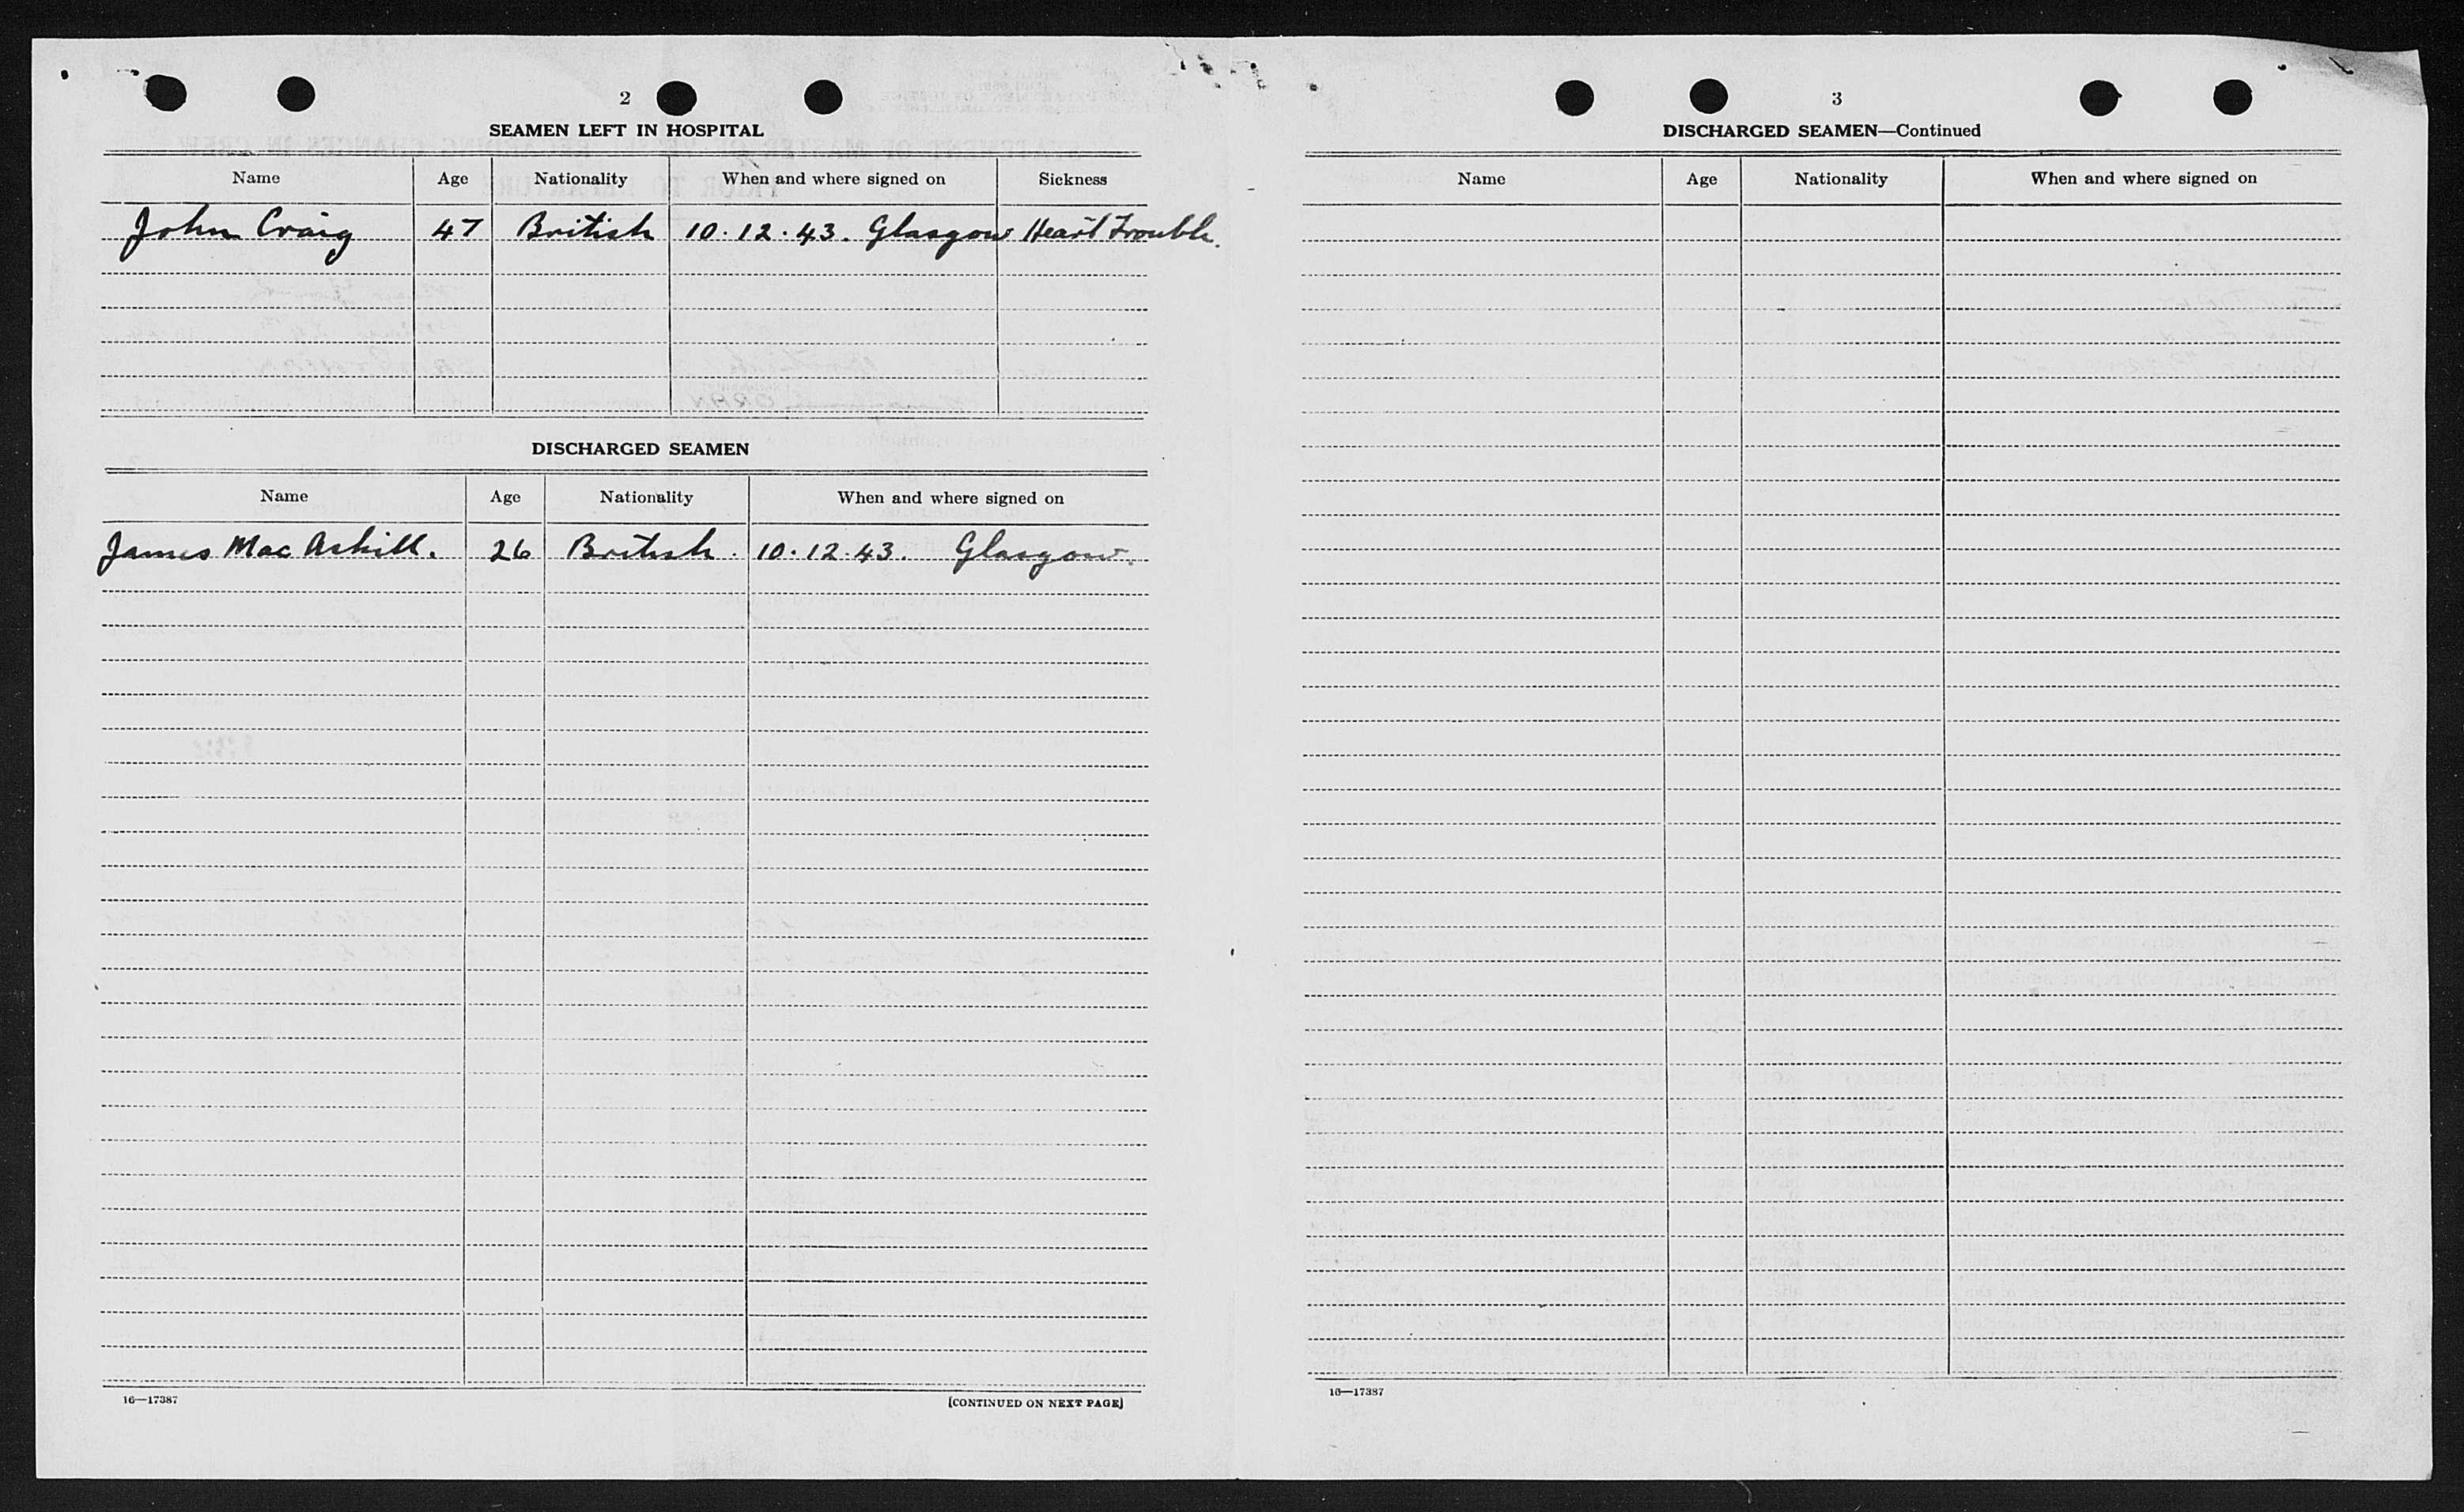 2
SEAMEN LEFT IN HOSPITAL
Name Age Nationality When and where signed on Sickness
John Craig 47 British 10.12.43. Glasgow Heart Trouble.
DISCHARGED SEAMEN
Name Age Nationality When and where signed on
James Mac Askill. 26 British. 10.12.43. Glasgow.
16—17387 [CONTINUED ON NEXT PAGE]
3
DISCHARGED SEAMEN—Continued
Name Age Nationality When and where signed on
16—17387